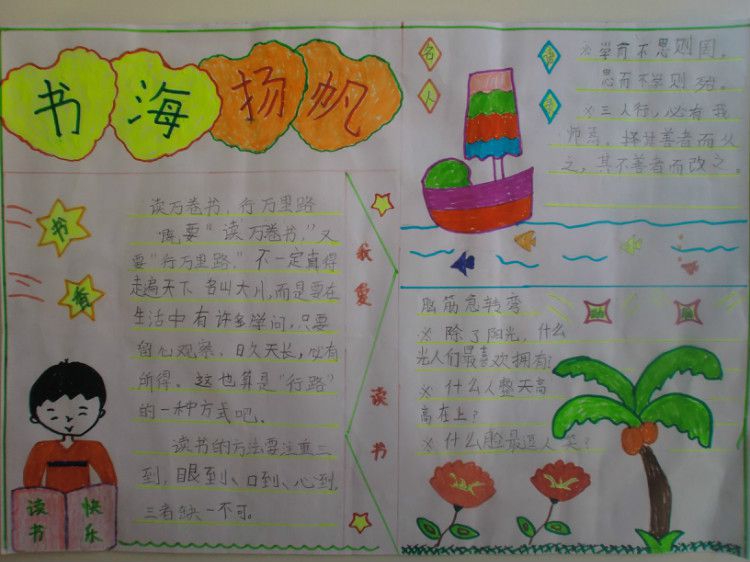 书海扬帆
书
香
读万卷书，行万里路
既要“读万卷书，”又
要“行万里路，”不一定真得
走遍天下名山大川，而是要在
生活中有许多学问，只要
留心观察，日久天长，必有
所得。这也算是“行路”
的一种方式吧。
读书的方法要注重三
到，眼到、口到、心到，
三者缺一不可。
读书
快乐
我爱读书
名人
语录
※学而不思则罔，
思而不学则殆。
※三人行，必有我
师焉。择其善者而从
之，其不善者而改之。
脑筋急转弯
※除了阳光，什么
光人们最喜欢拥有？
※什么人整天高
高在上？
※什么脸最逗人笑？